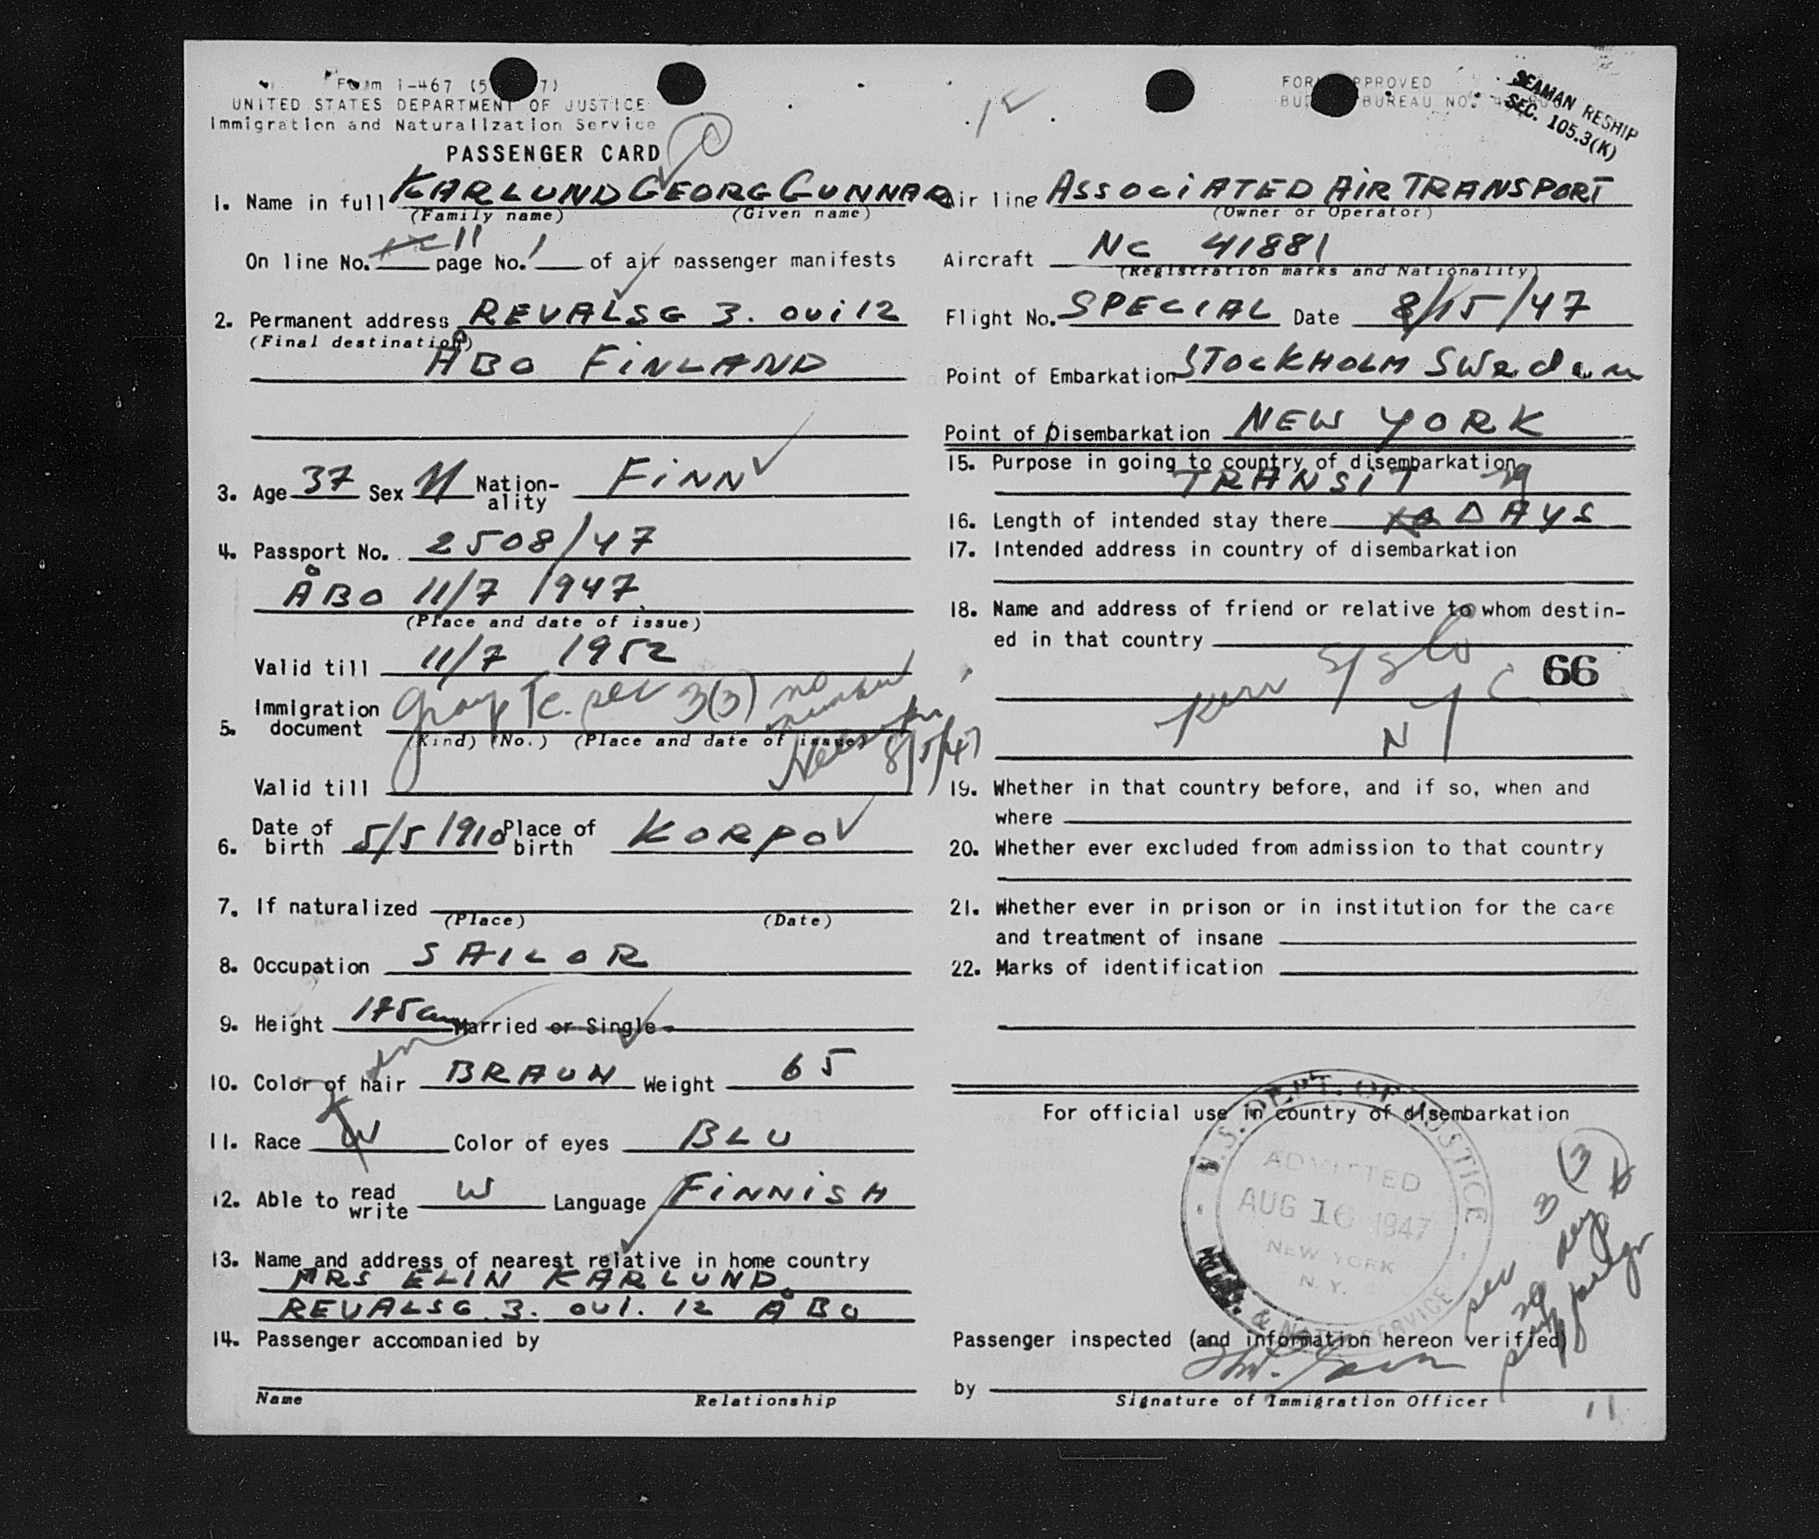 Form I-467 (5 7)
UNITED STATES DEPARTMENT OF JUSTICE
Immigration and Naturalization Service
PASSENGER CARD
FORM APPROVED
BUREAU NO.
SEAMAN RESHIP
SEC. 105.3(K)
1. Name in full KARLUND GEORG GUNNAR
(Family name) (Given name)
On line No. 11 page No. 1 of air passenger manifests
2. Permanent address REVALSG 3. OVI 12
(Final destination)
ÅBO FINLAND
3. Age 37 Sex M Nation-
ality FINN
4. Passport No. 2508/47
ÅBO 11/7 1947
(Place and date of issue)
Valid till 11/7 1952
5. Immigration
document Group Tr. sec 3(3) no
(Kind) (No.) (Place and date of issue)
8/15/47
Valid till
6. Date of
birth 5/5 1910 Place of
birth KORPO
7. If naturalized
(Place) (Date)
8. Occupation SAILOR
9. Height 175 cm Married or Single
10. Color of hair BRAUN Weight 65
11. Race W Color of eyes BLU
12. Able to read
write W Language FINNISH
13. Name and address of nearest relative in home country
MRS ELIN KARLUND.
REVALSG 3. OVI. 12 ÅBO
14. Passenger accompanied by
Name Relationship
Air line ASSOCIATED AIR TRANSPORT
(Owner or Operator)
Aircraft NC 41881
(Registration marks and Nationality)
Flight No. SPECIAL Date 8/15/47
Point of Embarkation STOCKHOLM Sweden
Point of Disembarkation NEW YORK
15. Purpose in going to country of disembarkation
TRANSIT
16. Length of intended stay there 29 DAYS
17. Intended address in country of disembarkation
18. Name and address of friend or relative to whom destin-
ed in that country
Kerr S/S Co
66
N Y C
N Y
19. Whether in that country before, and if so, when and
where
20. Whether ever excluded from admission to that country
21. Whether ever in prison or in institution for the care
and treatment of insane
22. Marks of identification
For official use in country of disembarkation
U.S. DEPT. OF JUSTICE
ADMITTED
AUG 16 1947
NEW YORK
N.Y.
& NATZ. SERVICE
sec 3 (3)
29 days
Passenger inspected (and information hereon verified)
by
Signature of Immigration Officer
11